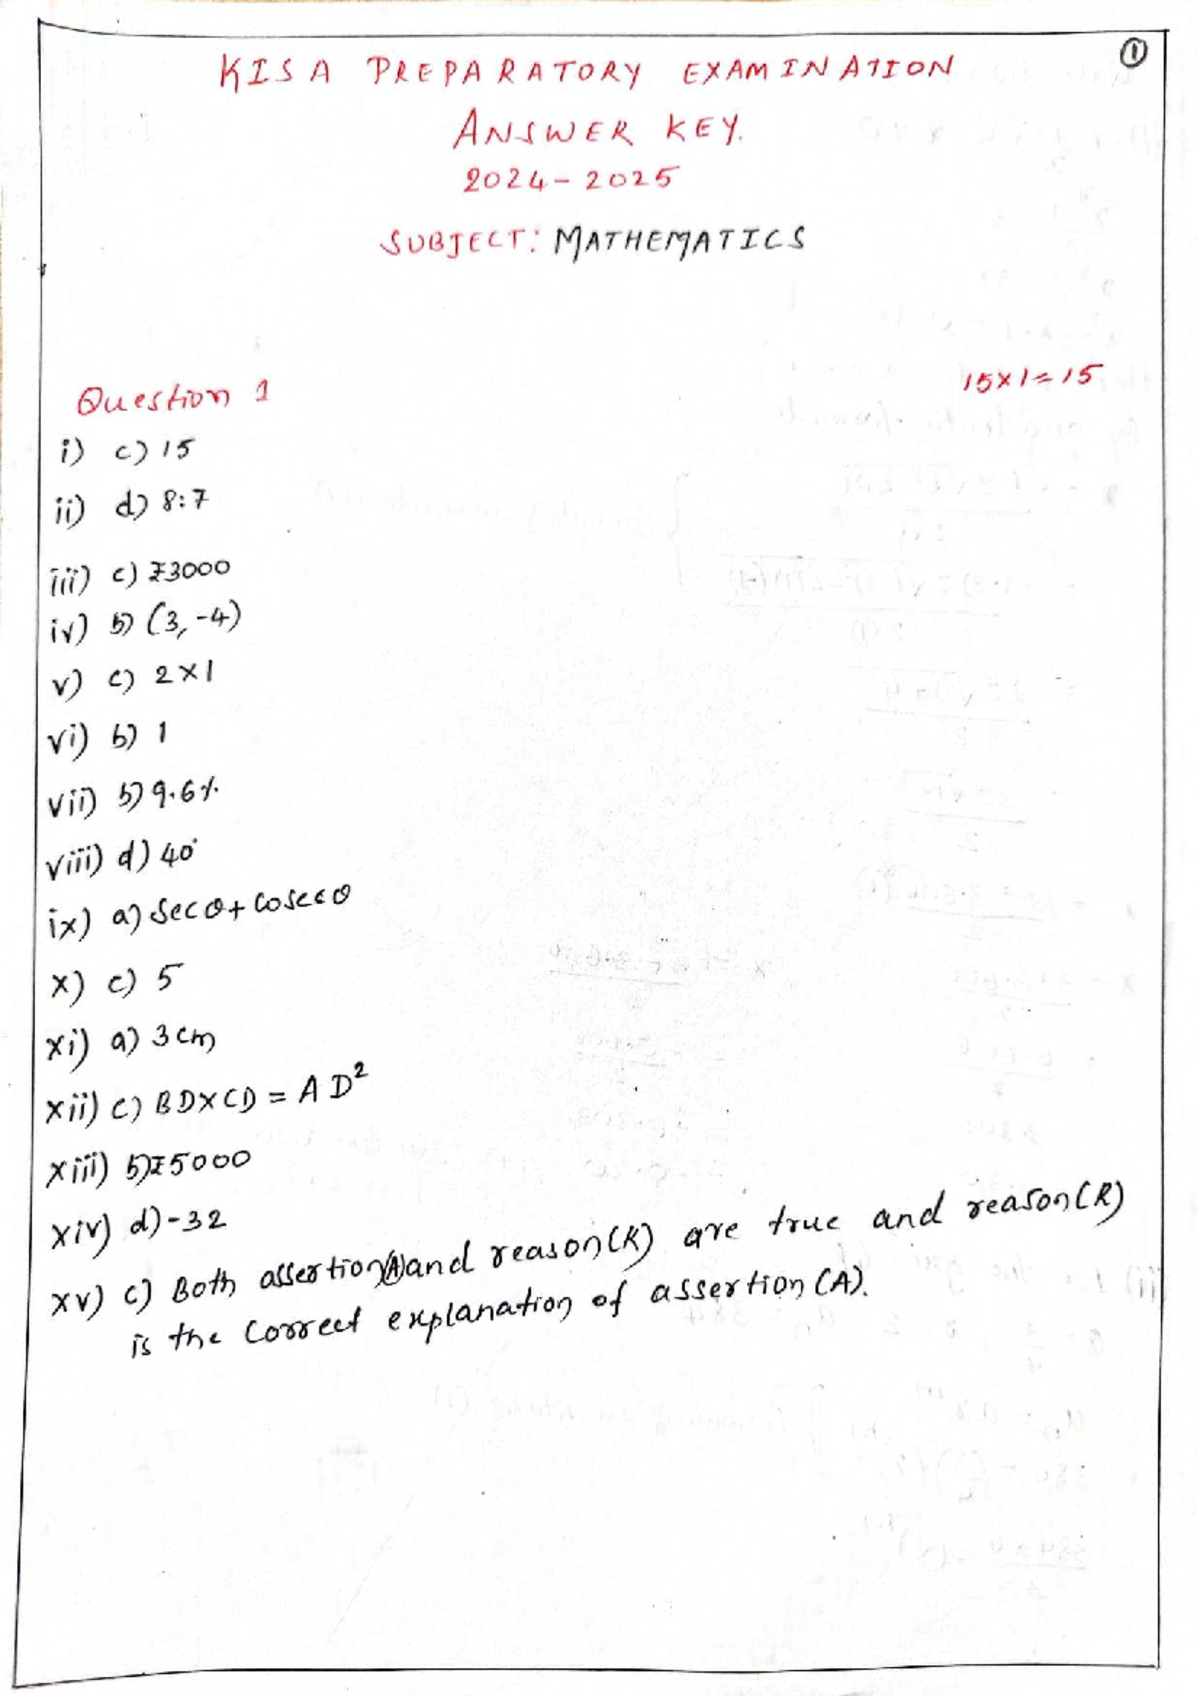 ①
KISA PREPARATORY EXAMINATION
ANSWER KEY.
2024-2025
SUBJECT: MATHEMATICS
15×1=15
Question 1
i) c) 15
ii) d) 8:7
iii) c) ₹3000
iv) b) (3,-4)
v) c) 2×1
vi) b) 1
vii) b) 9.6%
viii) d) 40°
ix) a) Secθ+Cosecθ
x) c) 5
xi) a) 3cm
xii) c) BD×CD = AD²
xiii) b) ₹5000
xiv) d) -32
xv) c) Both assertion(A) and reason(R) are true and reason(R)
is the correct explanation of assertion (A).